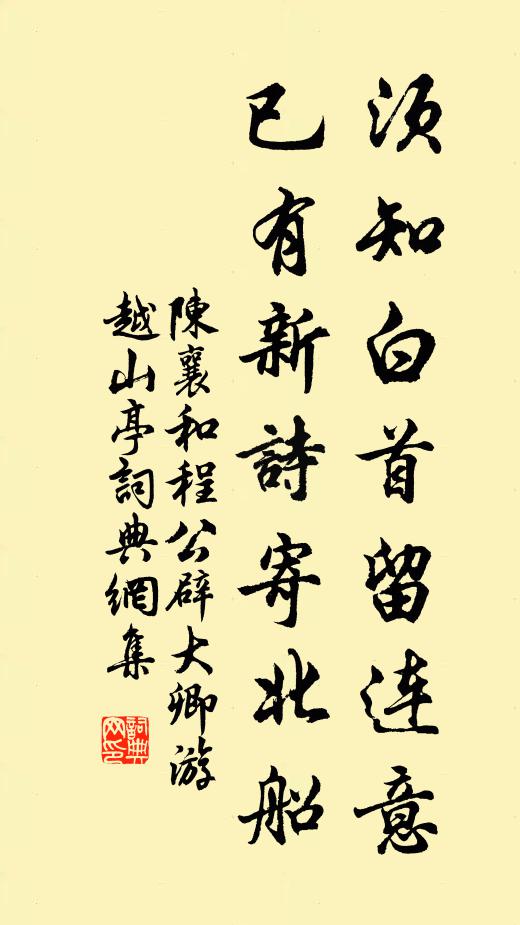 须知白首留连意
已有新詩寄北船
陳襄和程公辟大卿游
越山亭詞典網集
詞典网印